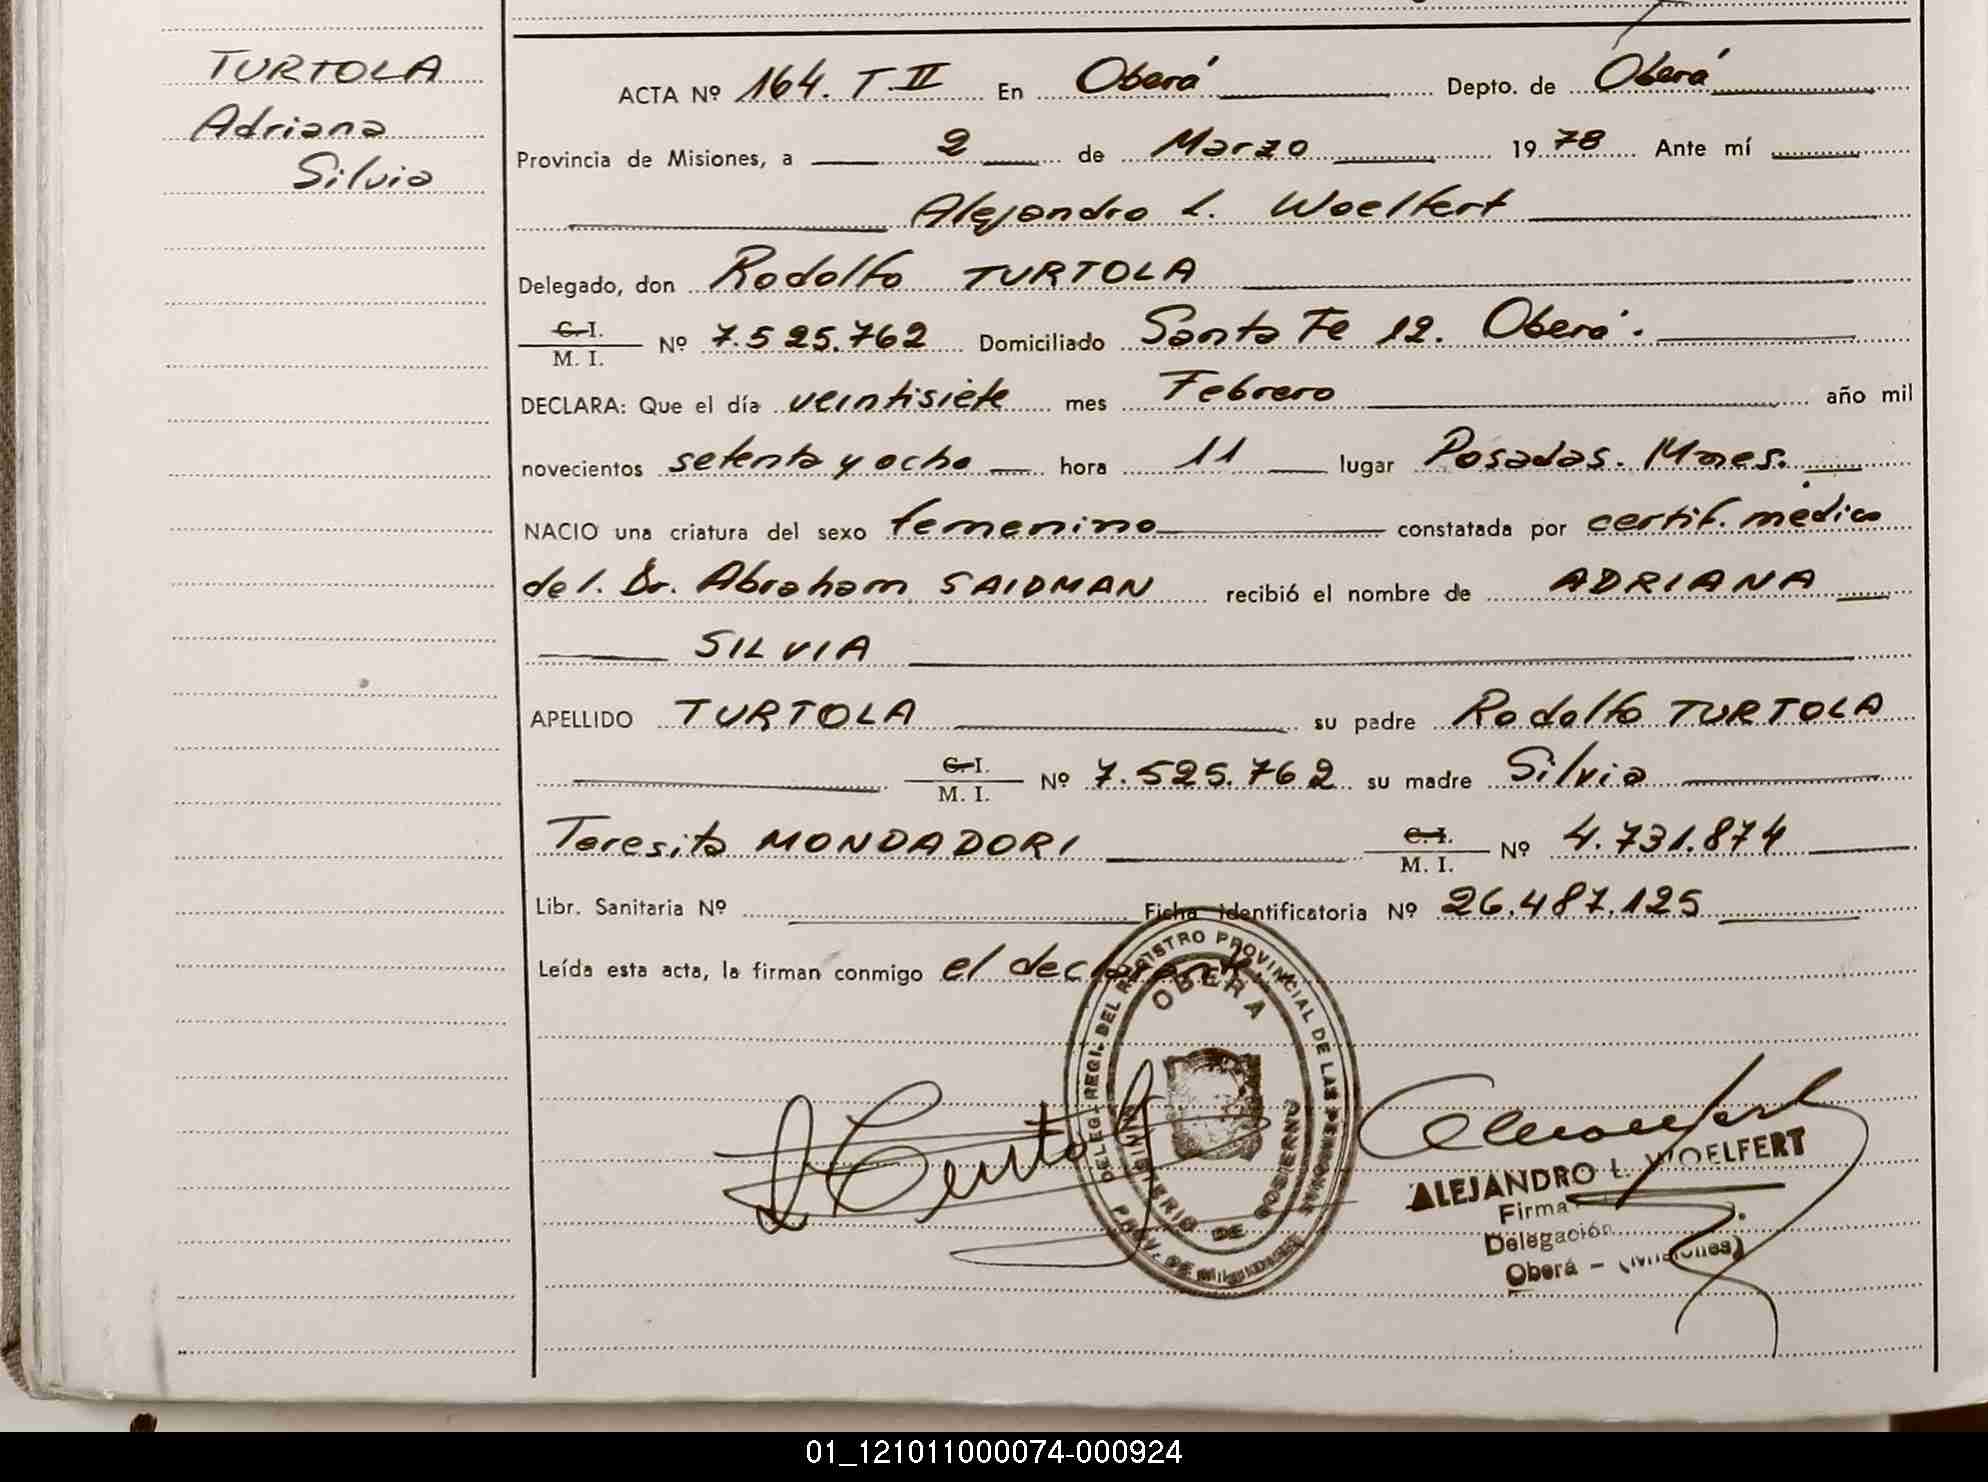 TURTOLA
Adriana
Silvia
ACTA Nº 164. T. II En Oberá Depto. de Oberá
Provincia de Misiones, a 2 de Marzo 1978 Ante mí
Alejandro L. Woelfert
Delegado, don Rodolfo TURTOLA
C. I.
M. I.
Nº 7.525.762 Domiciliado Santa Fe 12. Oberá.
DECLARA: Que el día veintisiete mes Febrero año mil
novecientos setenta y ocho hora 11 lugar Posadas. Mnes.
NACIO una criatura del sexo femenino constatada por certif. médico
del. Dr. Abraham SAIDMAN recibió el nombre de ADRIANA
SILVIA
APELLIDO TURTOLA su padre Rodolfo TURTOLA
C. I.
M. I.
Nº 7.525.762 su madre Silvia
Teresita MONDADORI
C. I.
M. I.
Nº 4.731.874
Libr. Sanitaria Nº Ficha identificatoria Nº 26.487.125
Leída esta acta, la firman conmigo el declarante.
DELEG. REGI. DEL REGISTRO PROVINCIAL DE LAS PERSONAS
OBERA
MINISTERIO DE GOBIERNO
PROV. DE MISIONES
ALEJANDRO L. WOELFERT
Firma
Delegación
Oberá - (Misiones)
01_121011000074-000924